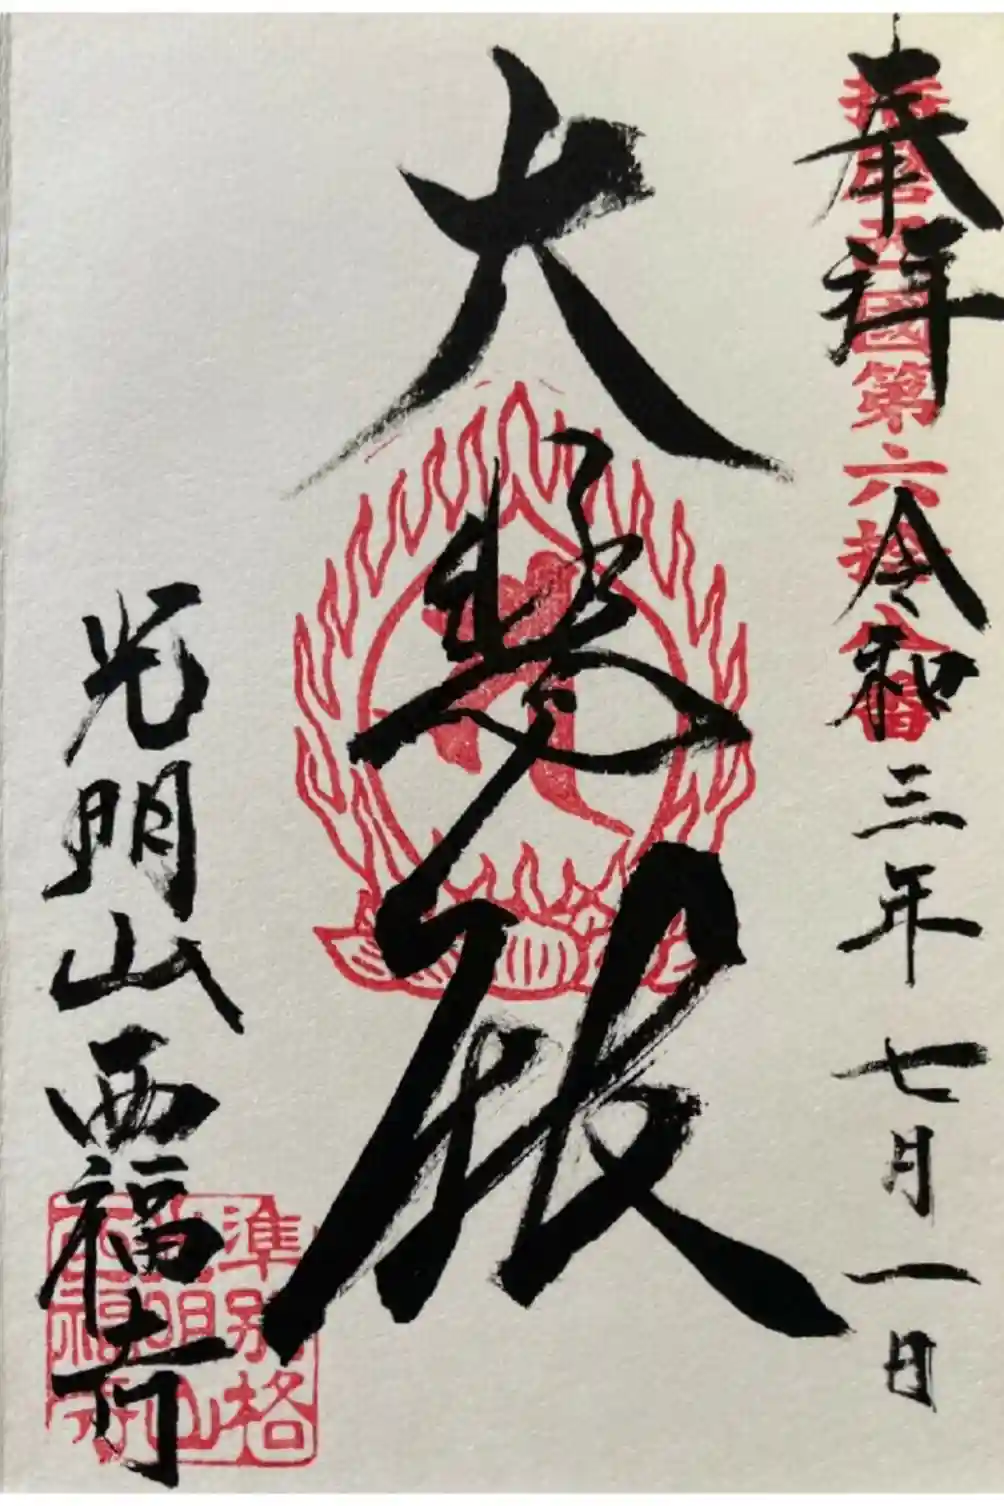 奉拜
令和三年七月一日
第六拾八番
大悲殿
光明山西福寺
準別格
光明山
西福寺